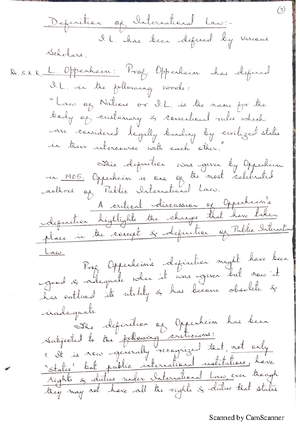 (1)
Definition of International Law:-
I.L has been defined by various
Scholars.
L. Oppenheim: Prof. Oppenheim has defined
I.L. in the following words:
"Law of Nations or I.L is the name for the
body of customary & conventional rules which
are considered legally binding by civilized states
in their intercourse with each other."
This definition was given by Oppenheim
in 1905. Oppenheim is one of the most celebrated
authors of Public International Law.
A critical discussion of Oppenheim's
definition highlights the changes that have taken
place in the concept & definition of Public International
Law
Prof. Oppenheim's definition might have been
good & adequate when it was given but now it
has outlived its utility & has become obsolete &
inadequate
The definition of Oppenheim has been
subjected to the following criticisms:
It is now generally recognized that not only
'States' but public international institutions have
rights & duties under International Law even though
they may not have all the rights & duties that states
Scanned by CamScanner